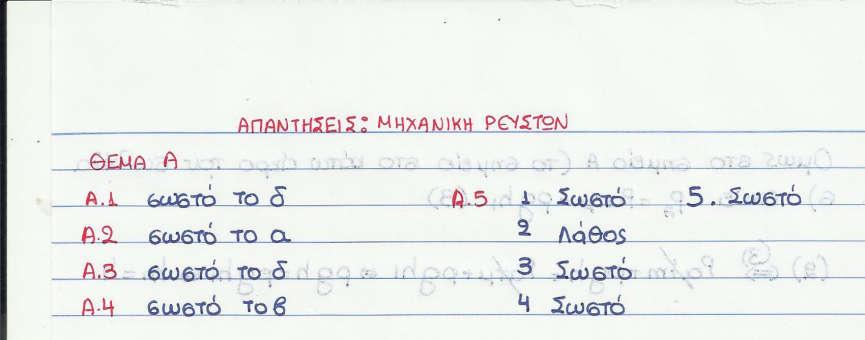 ΑΠΑΝΤΗΣΕΙΣ: ΜΗΧΑΝΙΚΗ ΡΕΥΣΤΩΝ
ΘΕΜΑ Α
Α.1 σωστό το δ Α.5 1 Σωστό 5. Σωστό
Α.2 σωστό το α 2 Λάθος
Α.3 σωστό το δ 3 Σωστό
Α.4 σωστό το β 4 Σωστό